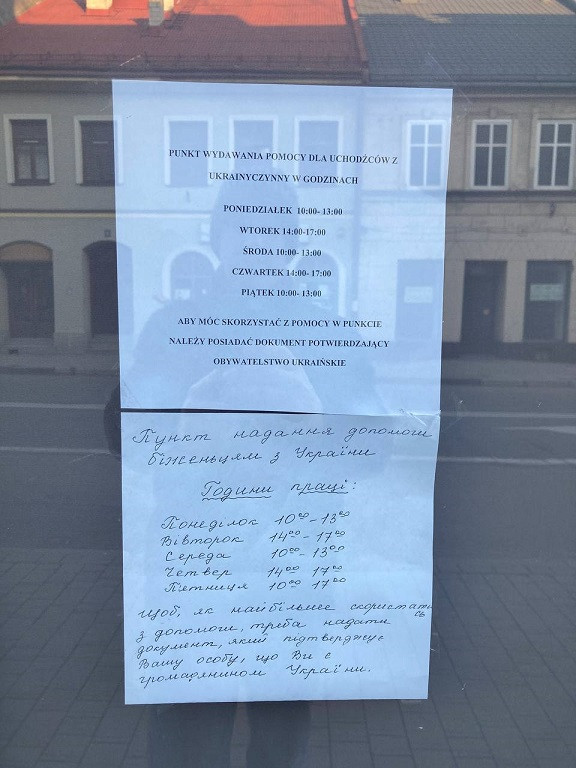 PUNKT WYDAWANIA POMOCY DLA UCHODŹCÓW Z
UKRAINYCZYNNY W GODZINACH
PONIEDZIAŁEK 10:00- 13:00
WTOREK 14:00-17:00
ŚRODA 10:00- 13:00
CZWARTEK 14:00- 17:00
PIĄTEK 10:00- 13:00
ABY MÓC SKORZYSTAĆ Z POMOCY W PUNKCIE
NALEŻY POSIADAĆ DOKUMENT POTWIERDZAJĄCY
OBYWATELSTWO UKRAIŃSKIE
Пункт надання допомоги
біженьцям з України
Години праці:
Понеділок 10⁰⁰-13⁰⁰
Вівторок 14⁰⁰-17⁰⁰
Середа 10⁰⁰-13⁰⁰
Четвер 14⁰⁰ 17⁰⁰
П'ятниця 10⁰⁰ 17⁰⁰
Щоб, як найбільнее скористати
сь
з допомоги, треба надати
документ, який підтверджує
Вашу особу, що Ви є
громадянином України.